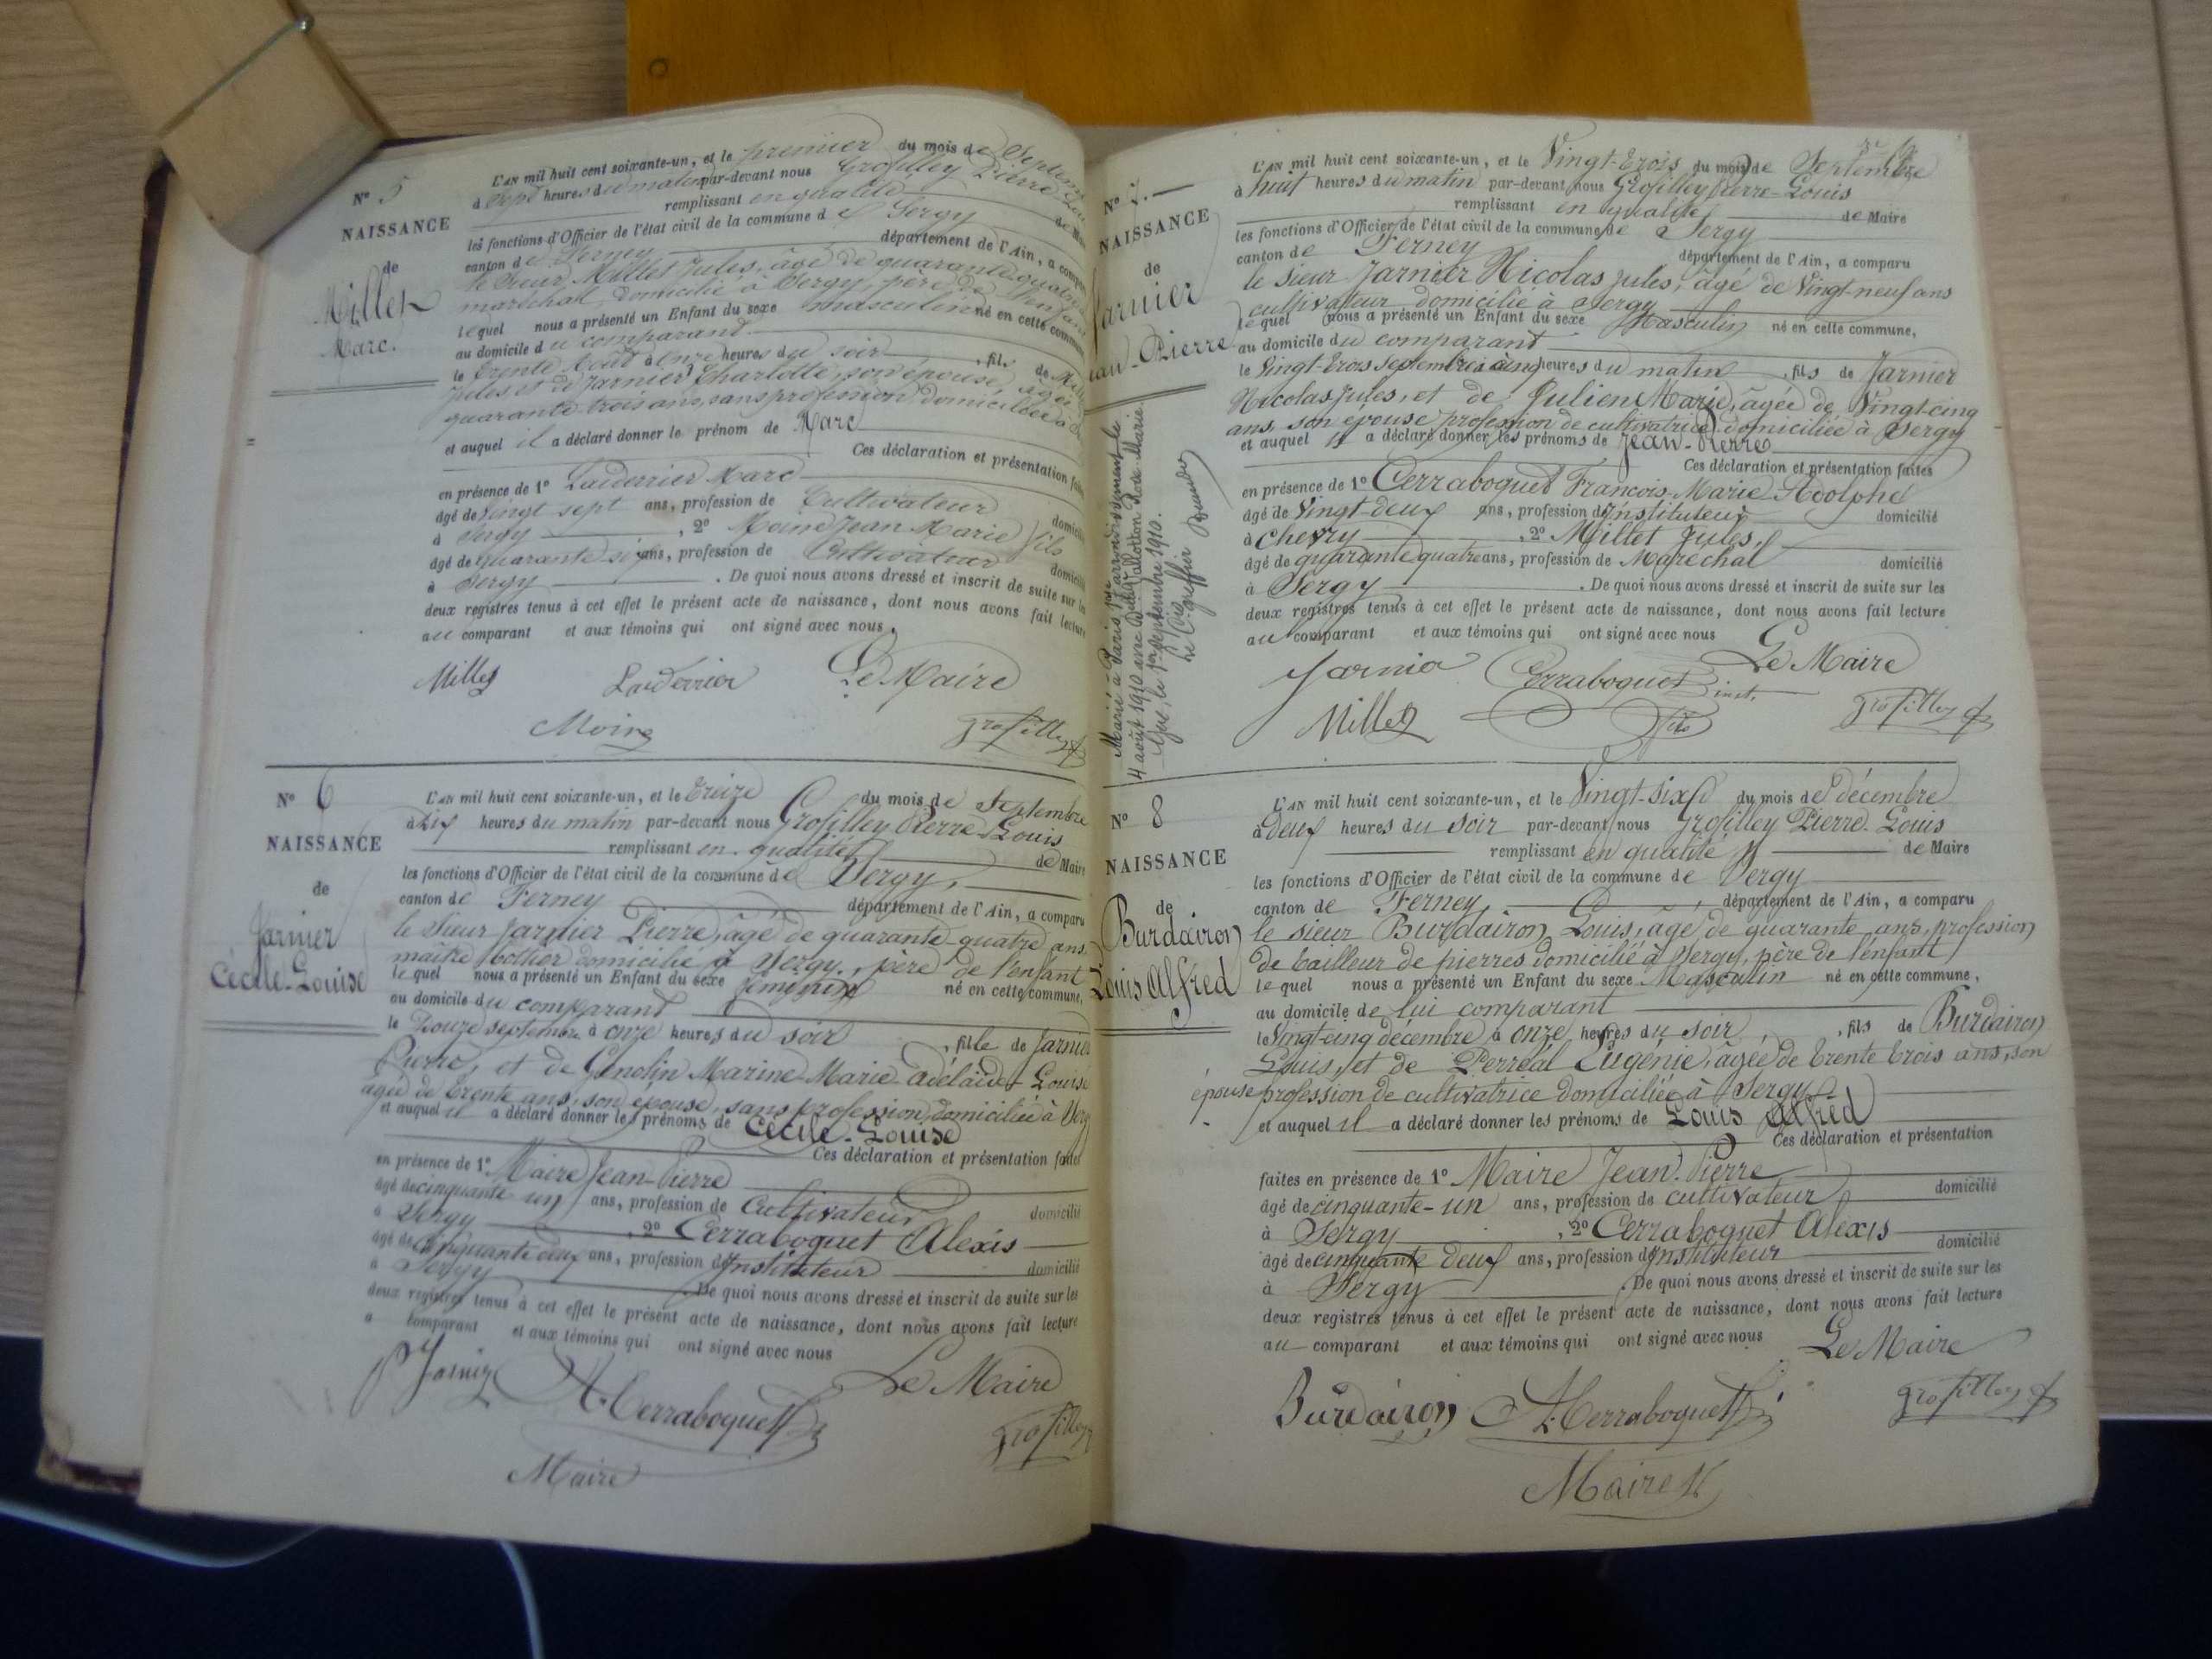 N° 5
NAISSANCE
de
Millet
Marc.
L'AN mil huit cent soixante-un, et le premier du mois de Septembre
à sept heures du matin par-devant nous Grosfilley Pierre
remplissant en qualité de Maire
les fonctions d'Officier de l'état civil de la commune de Sergy
canton de Ferney département de l'Ain, a comparu
le Sieur Millet Jules, âgé de quarante quatre
maréchal, domicilié à Sergy, père de l'enfant
lequel nous a présenté un Enfant du sexe masculin né en cette commune
au domicile du comparant
le trente Août à onze heures du soir, fils de
Jules, et de Jarnier Charlotte, son épouse, âgée de
quarante-trois ans, sans profession domiciliée à
et auquel il a déclaré donner le prénom de Marc
Ces déclaration et présentation faites
en présence de 1° Laverrier Marc
âgé de vingt sept ans, profession de Cultivateur domicilié
à Sergy, 2° Moine Jean Marie fils
âgé de quarante six ans, profession de Cultivateur domicilié
à Sergy. De quoi nous avons dressé et inscrit de suite sur les
deux registres tenus à cet effet le présent acte de naissance, dont nous avons fait lecture
au comparant et aux témoins qui ont signé avec nous.
Millet Laverrier Le Maire
Moine Grosfilley
N° 6
NAISSANCE
de
Jarnier
Cécile-Louise
L'AN mil huit cent soixante-un, et le treize du mois de Septembre
à dix heures du matin par-devant nous Grosfilley Pierre-Louis
remplissant en qualité de Maire
les fonctions d'Officier de l'état civil de la commune de Sergy,
canton de Ferney département de l'Ain, a comparu
le Sieur Jarnier Pierre, âgé de quarante-quatre ans
maître bottier domicilié à Sergy, père de l'enfant
lequel nous a présenté un Enfant du sexe féminin né en cette commune,
au domicile du comparant
le Douze septembre à onze heures du soir, fille de Jarnier
Pierre, et de Genolin Marine Marie Adélaïde Louise
agée de trente ans, son épouse, sans profession, domiciliée à Sergy
et auquel il a déclaré donner les prénoms de Cécile-Louise
Ces déclaration et présentation faites
en présence de 1° Maire Jean-Pierre
âgé de cinquante un ans, profession de Cultivateur domicilié
à Sergy, 2° Cerraboquet Alexis
âgé de cinquante deux ans, profession d'Instituteur domicilié
à Sergy De quoi nous avons dressé et inscrit de suite sur les
deux registres tenus à cet effet le présent acte de naissance, dont nous avons fait lecture
a comparant et aux témoins qui ont signé avec nous
P Jarnier A. Cerraboquet Le Maire
Maire Grosfilley
N° 7.
NAISSANCE
de
Jarnier
Jean-Pierre
Marié à Paris arrondissement le
4 août 1910 avec Rose Marie.
Gex, le septembre 1910.
Le Greffier
L'AN mil huit cent soixante-un, et le Vingt-trois du mois de Septembre
à huit heures du matin par-devant nous Grosfilley Pierre-Louis
remplissant en qualité de Maire
les fonctions d'Officier de l'état civil de la commune de Sergy
canton de Ferney département de l'Ain, a comparu
le sieur Jarnier Nicolas jules, âgé de Vingt-neuf ans
cultivateur domicilié à Sergy
lequel nous a présenté un Enfant du sexe Masculin né en cette commune,
au domicile du comparant
le Vingt-trois septembre à cinq heures du matin, fils de Jarnier
Nicolas jules, et de Julien Marie, âgée de Vingt-cinq
ans, son épouse profession de cultivatrice domiciliée à Sergy
et auquel il a déclaré donner les prénoms de Jean-Pierre
Ces déclaration et présentation faites
en présence de 1° Cerraboquet François Marie Adolphe
âgé de Vingt-deux ans, profession d'Instituteur domicilié
à Chevry, 2° Millet Jules,
âgé de quarante quatre ans, profession de Maréchal domicilié
à Sergy. De quoi nous avons dressé et inscrit de suite sur les
deux registres tenus à cet effet le présent acte de naissance, dont nous avons fait lecture
au comparant et aux témoins qui ont signé avec nous Le Maire
Jarnier Cerraboquet inst.
Millet fils Grosfilley
N° 8
NAISSANCE
de
Burdairon
Louis Alfred
L'AN mil huit cent soixante-un, et le Vingt-six du mois de décembre
à deux heures du soir par-devant nous Grosfilley Pierre-Louis
remplissant en qualité de Maire
les fonctions d'Officier de l'état civil de la commune de Sergy
canton de Ferney, département de l'Ain, a comparu
le sieur Burdairon Louis, âgé de quarante ans, profession
de tailleur de pierres domicilié à Sergy, père de l'enfant
lequel nous a présenté un Enfant du sexe Masculin né en cette commune,
au domicile de lui comparant
le Vingt-cinq décembre à onze heures du soir, fils de Burdairon
Louis, et de Perréal Eugénie, âgée de trente trois ans, son
épouse profession de cultivatrice domiciliée à Sergy
et auquel il a déclaré donner les prénoms de Louis Alfred
Ces déclaration et présentation
faites en présence de 1° Maire Jean-Pierre
âgé de cinquante-un ans, profession de cultivateur domicilié
à Sergy, 2° Cerraboquet Alexis
âgé de cinquante deux ans, profession d'Instituteur domicilié
à Sergy De quoi nous avons dressé et inscrit de suite sur les
deux registres tenus à cet effet le présent acte de naissance, dont nous avons fait lecture
au comparant et aux témoins qui ont signé avec nous Le Maire
Burdairon A. Cerraboquet Grosfilley
Maire